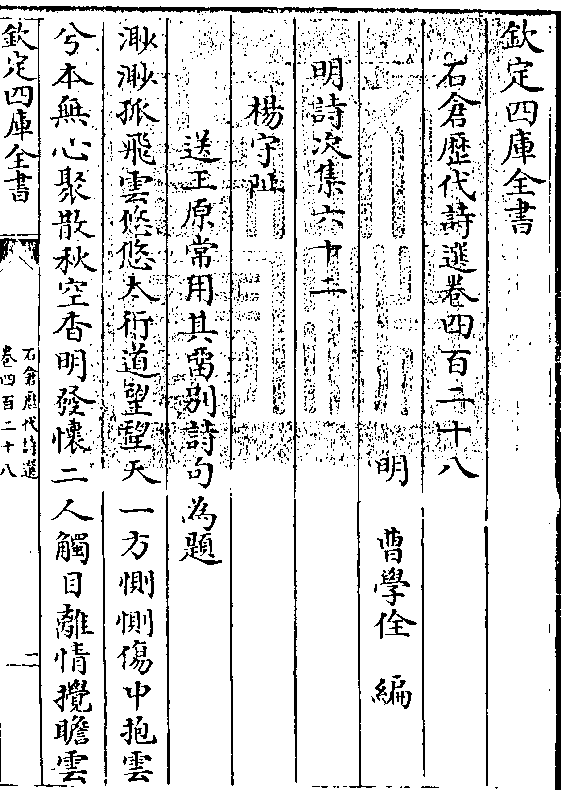 欽定四庫全書
石倉歷代詩選卷四百二十八
明　曹學佺　編
明詩次集六十二
楊守阯
送王原常用其留别詩句為題
渺渺孤飛雲悠悠太行道望望天一方惻惻傷中抱雲
兮本無心聚散秋空杳明發懷二人觸目離情攪瞻雲
欽定四庫全書
石倉歷代詩選
卷四百二十八
一